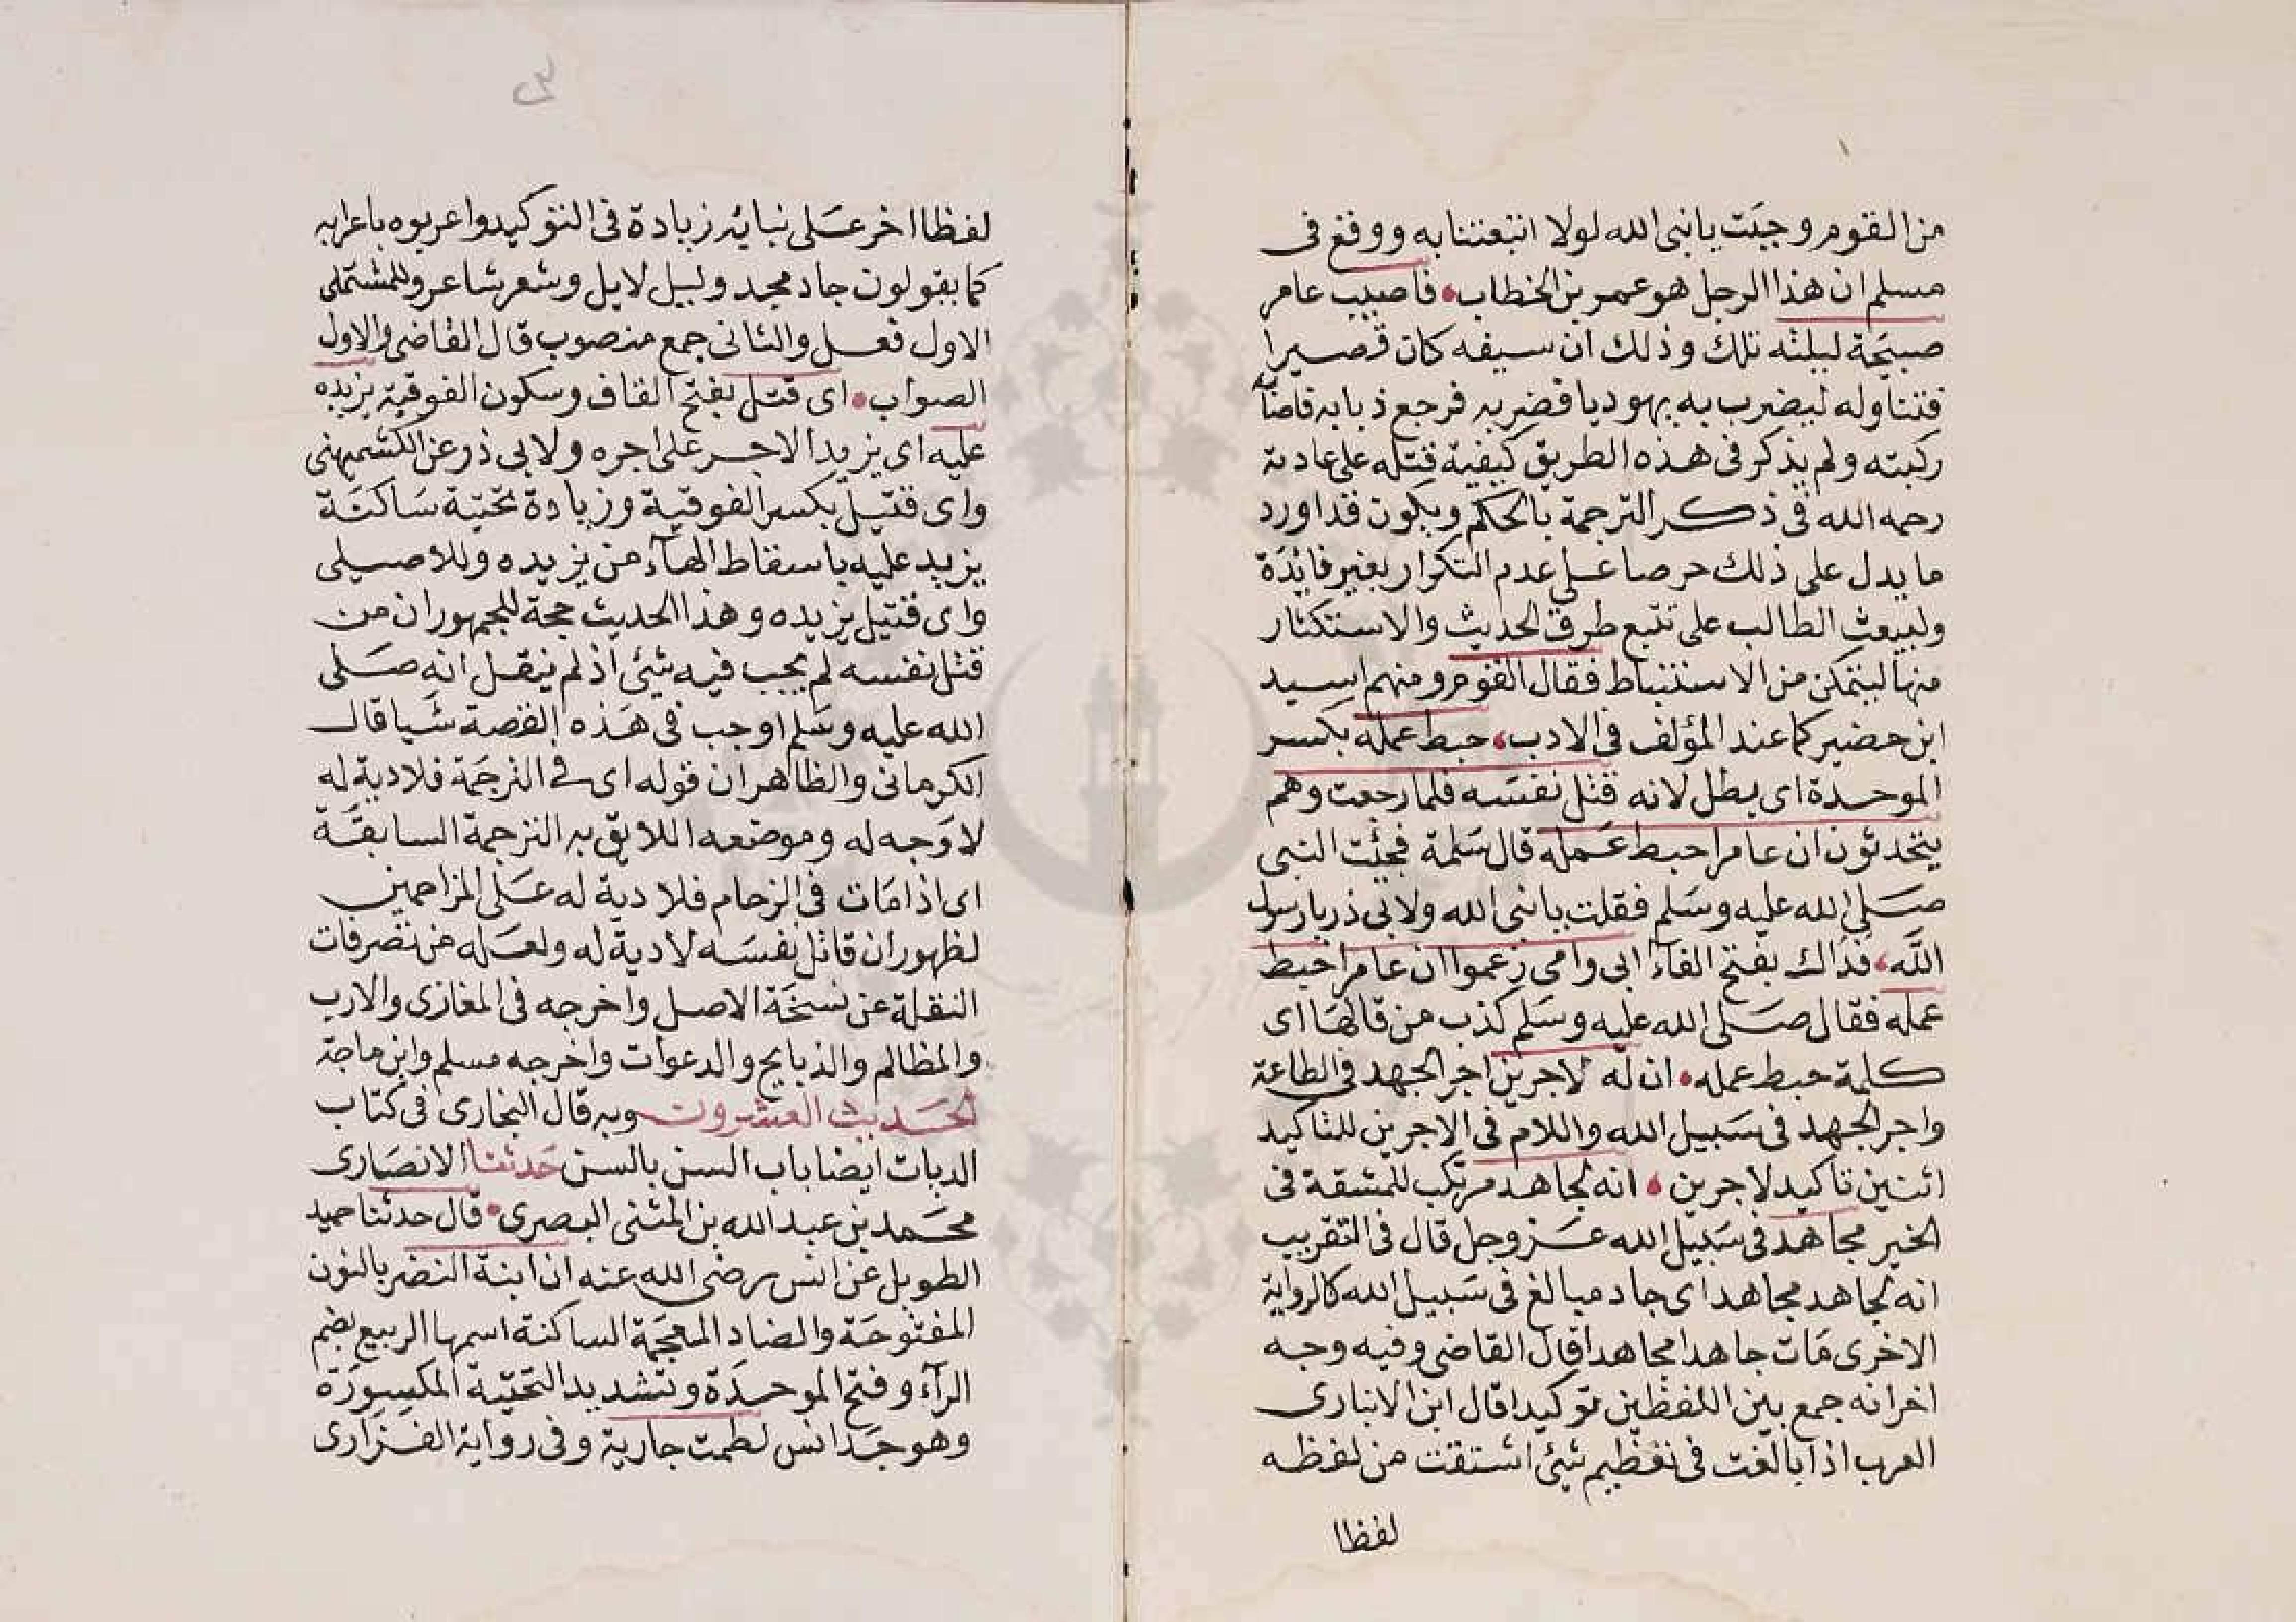 من القوم وجبت يا نبى الله لولا امتعتنا به ووقع فى
مسلم ان هذا الرجل هو عمر بن الخطاب فاصيب عامر
صبيحة ليلته تلك وذلك ان سيفه كان قصيرا
فتناوله ليضرب به يهوديا فضربه فرجع ذبابه فاصاب
ركبته ولم يذكر فى هذه الطريق كيفية قتله على عادته
رحمه الله فى ذكر الترجمة بالحكم ويكون قد اورد
ما يدل على ذلك حرصا على عدم التكرار بغير فايدة
وليبعث الطالب على تتبع طرق الحديث والاستكثار
منها ليتمكن من الاستنباط فقال القوم ومنهم اسيد
ابن حضير كما عند المؤلف فى الادب حبط عمله بكسر
الموحدة اى بطل لانه قتل نفسه فلما رجعت وهم
يتحدثون ان عامرا حبط عمله قال سلمة فجئت النبى
صلى الله عليه وسلم فقلت يا نبى الله ولابى ذر يا رسول
الله فداك بفتح الفاء ابى وامى زعموا ان عامرا حبط
عمله فقال صلى الله عليه وسلم كذب من قالها اى
كلمة حبط عمله ان له لاجرين اجر الجهد فى الطاعة
واجر الجهد فى سبيل الله واللام فى الاجرين للتاكيد
اثنين تاكيد لاجرين انه لجاهد مرتكب للمشقة فى
الخير مجاهد فى سبيل الله عز وجل قال فى التقريب
انه لجاهد مجاهد اى جاد مبالغ فى سبيل الله كالرواية
الاخرى مات جاهدا مجاهدا قال القاضى وفيه وجه
اخر انه جمع بين اللفظين توكيدا قال ابن الانبارى
العرب اذا بالغت فى تعظيم شئ اشتقت من لفظه
لفظا
لفظا اخر على بنائه زيادة فى التوكيد واعربوه باعرابه
كما يقولون جاد مجد وليل لايل وشعر شاعر وللمستملى
الاول فعل والثانى جمع منصوب قال القاضى والاول
الصواب اى قتل بفتح القاف وسكون الفوقية يزيده
عليه اى يزيد الاجر على اجره ولابى ذر عن الكشميهنى
واى قتيل بكسر الفوقية وزيادة تحتية ساكنة
يزيد عليه باسقاط الهاء من يزيده وللاصيلى
واى قتيل يزيده وهذا الحديث حجة للجمهور ان من
قتل نفسه لم يجب فيه شئ اذ لم ينقل انه صلى
الله عليه وسلم اوجب فى هذه القصة شيا قال
الكرمانى والظاهر ان قوله اى فى الترجمة فلا دية له
لا وجه له وموضعه اللايق به الترجمة السابقة
اى اذا مات فى الزحام فلا دية له على المزاحمين
لظهور ان قاتل نفسه لا دية له ولعله من تصرفات
النقلة عن نسخة الاصل واخرجه فى المغازى والادب
والمظالم والذبايح والدعوات واخرجه مسلم وابن ماجة
الحديث العشرون وبه قال البخارى فى كتاب
الديات ايضا باب السن بالسن حدثنا الانصارى
محمد بن عبد الله بن المثنى البصرى قال حدثنا حميد
الطويل عن انس رضى الله عنه ان ابنة النضر بالنون
المفتوحة والضاد المعجمة الساكنة اسمها الربيع بضم
الرآء وفتح الموحدة وتشديد التحتية المكسورة
وهو جد انس لطمت جارية وفى رواية الفزارى